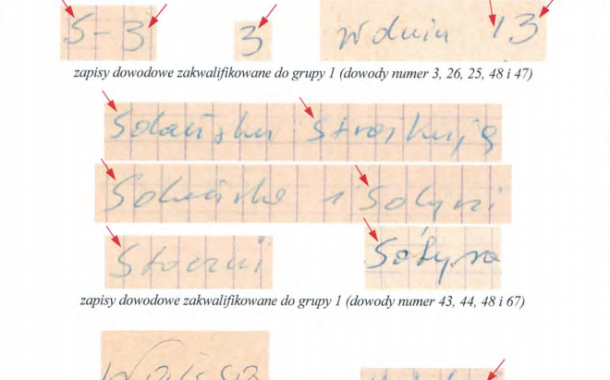 5-3 3 w dniu 13
zapisy dowodowe zakwalifikowane do grupy 1 (dowody numer 3, 26, 25, 48 i 47)
Gdańsku strajkują
i
Stoczni
zapisy dowodowe zakwalifikowane do grupy 1 (dowody numer 43, 44, 48 i 67)